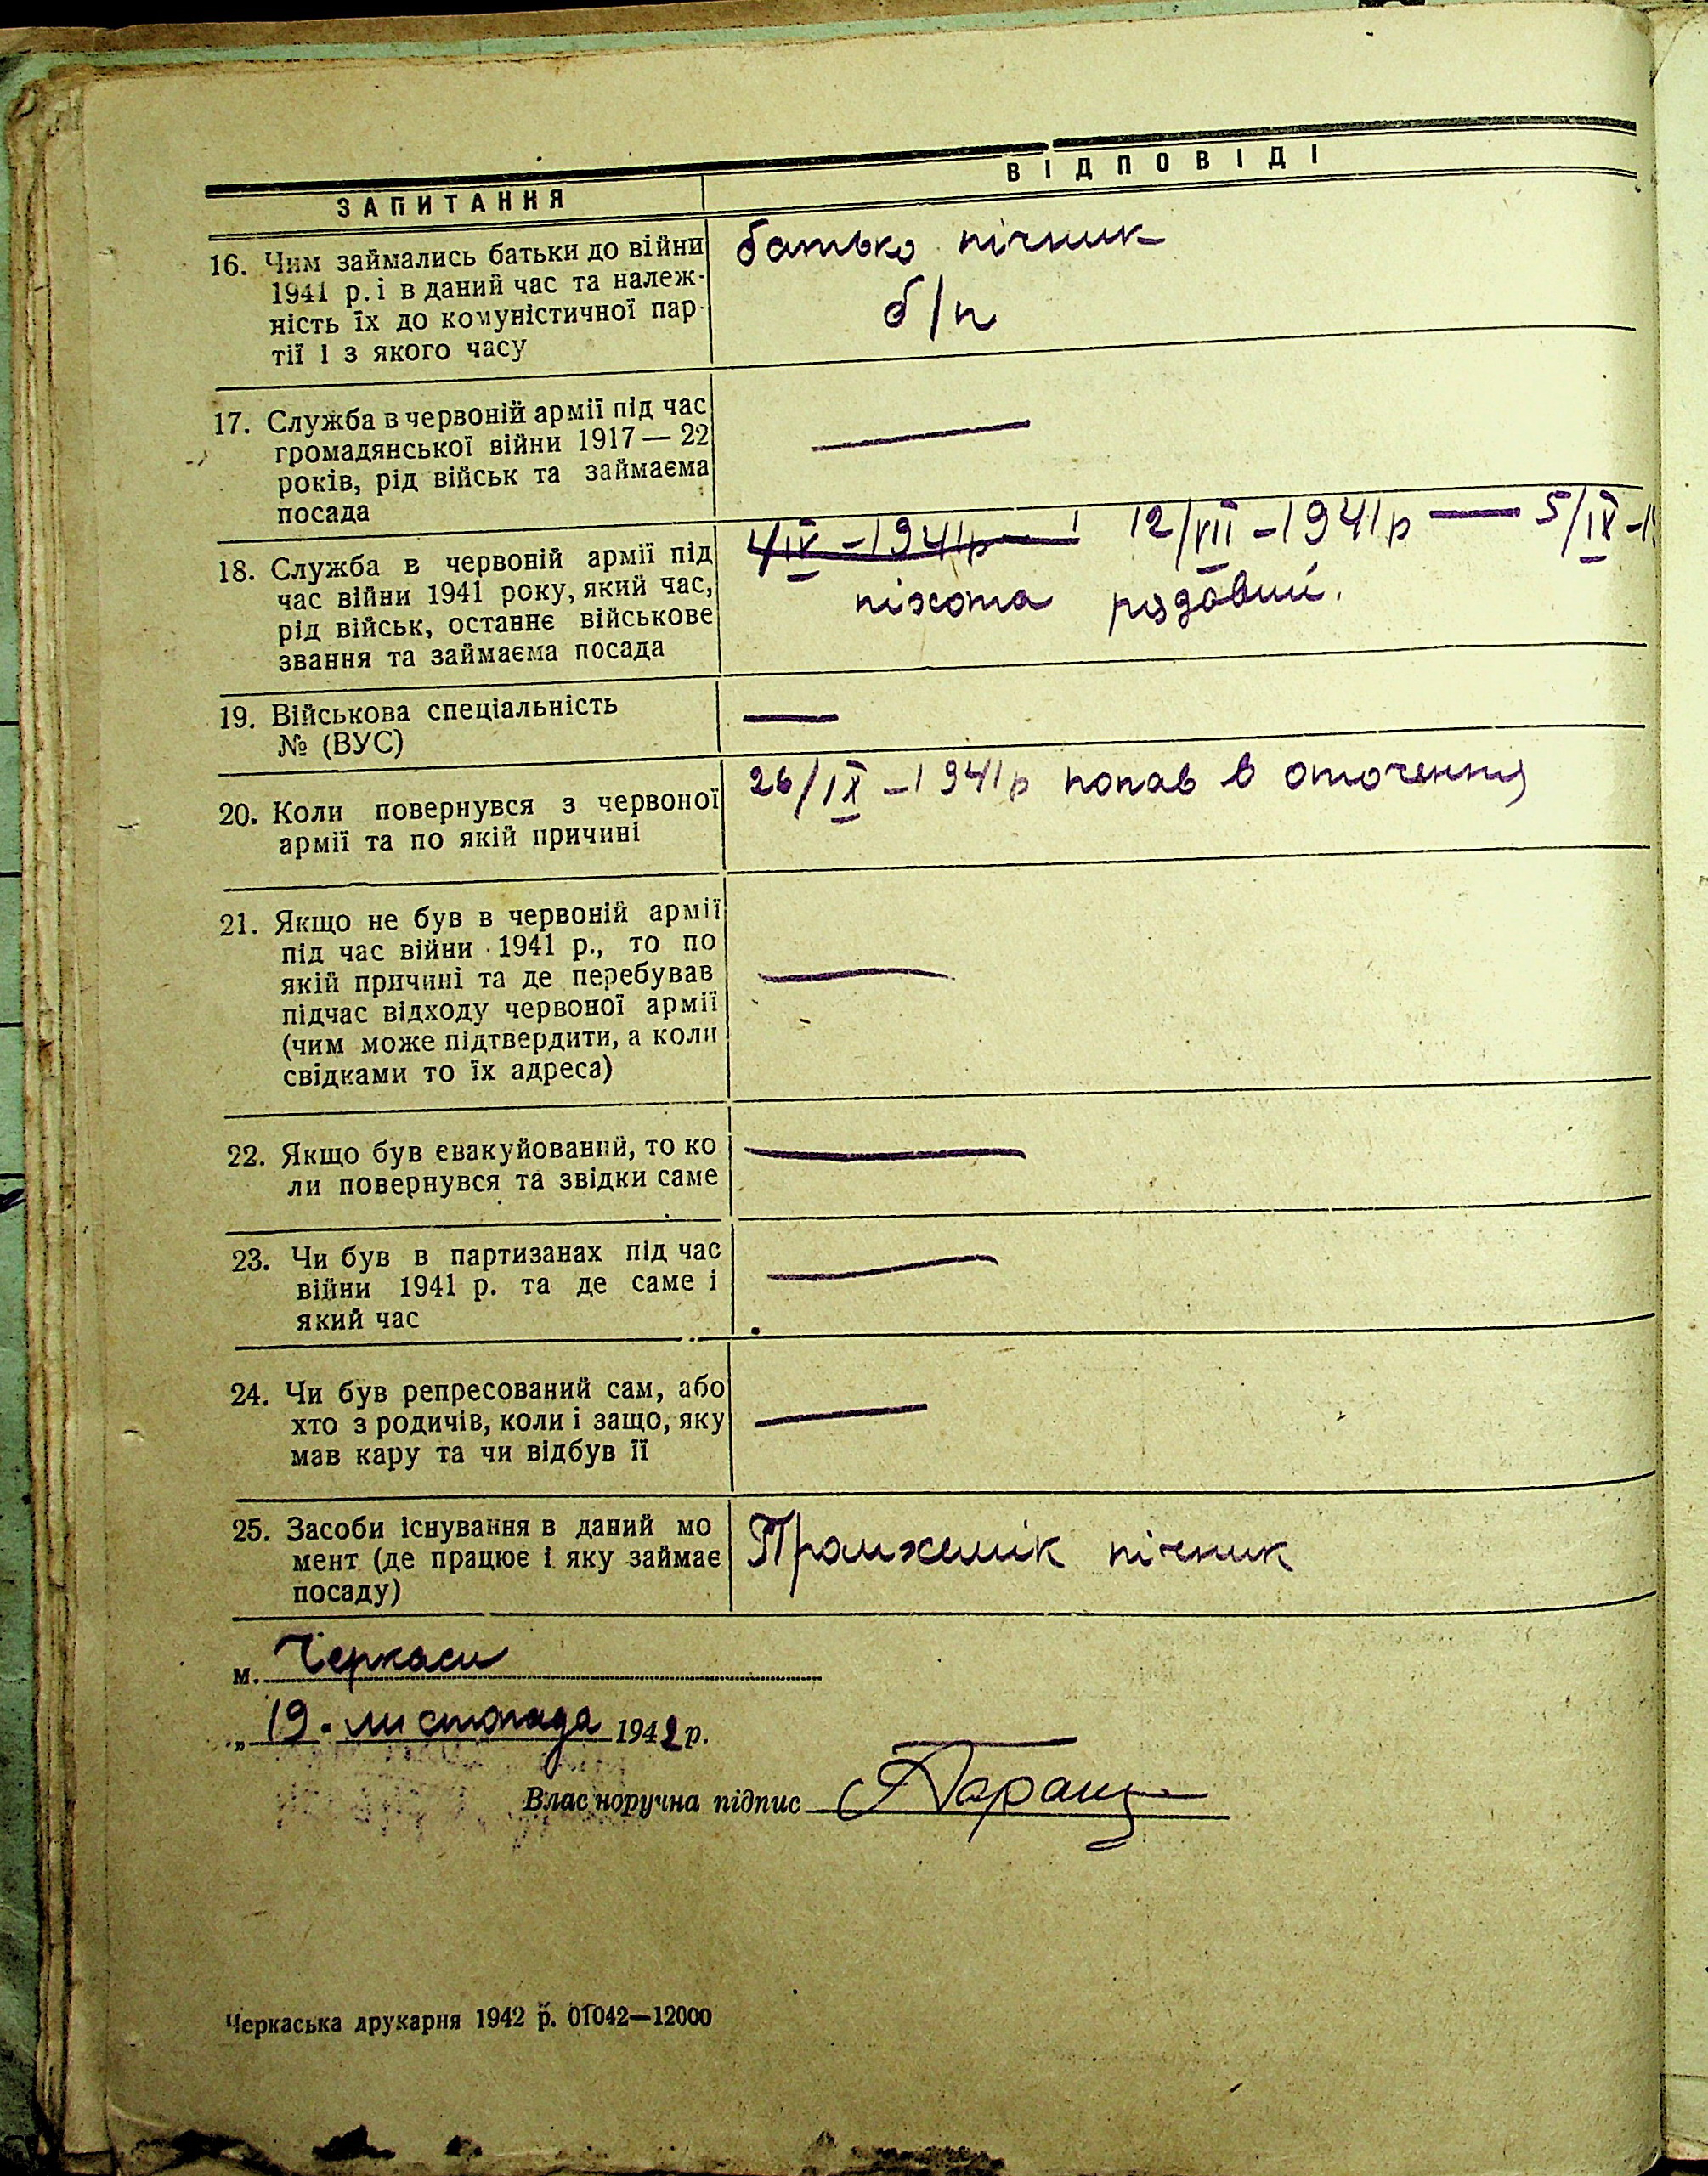 ЗАПИТАННЯ ВІДПОВІДІ
16. Чим займались батьки до війни батько пічник
1941 р. і в даний час та належ-
ність їх до комуністичної пар- б/п
тії і з якого часу
17. Служба в червоній армії під час
громадянської війни 1917 — 22
років, рід військ та займаєма
посада
18. Служба в червоній армії під 12/VII -1941р — 5/IX -1
час війни 1941 року, який час, піхота рядовий.
рід військ, останнє військове
звання та займаєма посада
19. Військова спеціальність —
№ (ВУС)
20. Коли повернувся з червоної 26/IX -1941р попав в оточення
армії та по якій причині
21. Якщо не був в червоній армії
під час війни 1941 р., то по
якій причині та де перебував —
підчас відходу червоної армії
(чим може підтвердити, а коли
свідками то їх адреса)
22. Якщо був евакуйований, то ко —
ли повернувся та звідки саме
23. Чи був в партизанах під час —
війни 1941 р. та де саме і
який час
24. Чи був репресований сам, або —
хто з родичів, коли і защо, яку
мав кару та чи відбув її
25. Засоби існування в даний мо
мент (де працює і яку займає пічник
посаду)
м. Черкаси
„ 19. листопада 1942 р.
Власноручна підпис
Черкаська друкарня 1942 р. 01042—12000